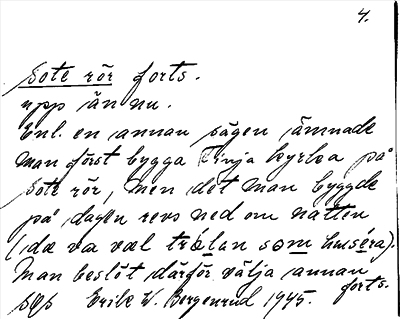 4.
Sote rör forts.
upp än nu.
Enl. en annan sägen ämnade
man först bygga Finja kyrka på
Sote rör, men det man byggde
på dagen revs ned om natten
(dæ va væl trólan som husèra).
Man beslöt därför välja annan
forts.
Erik W. Bergenrud 1945.